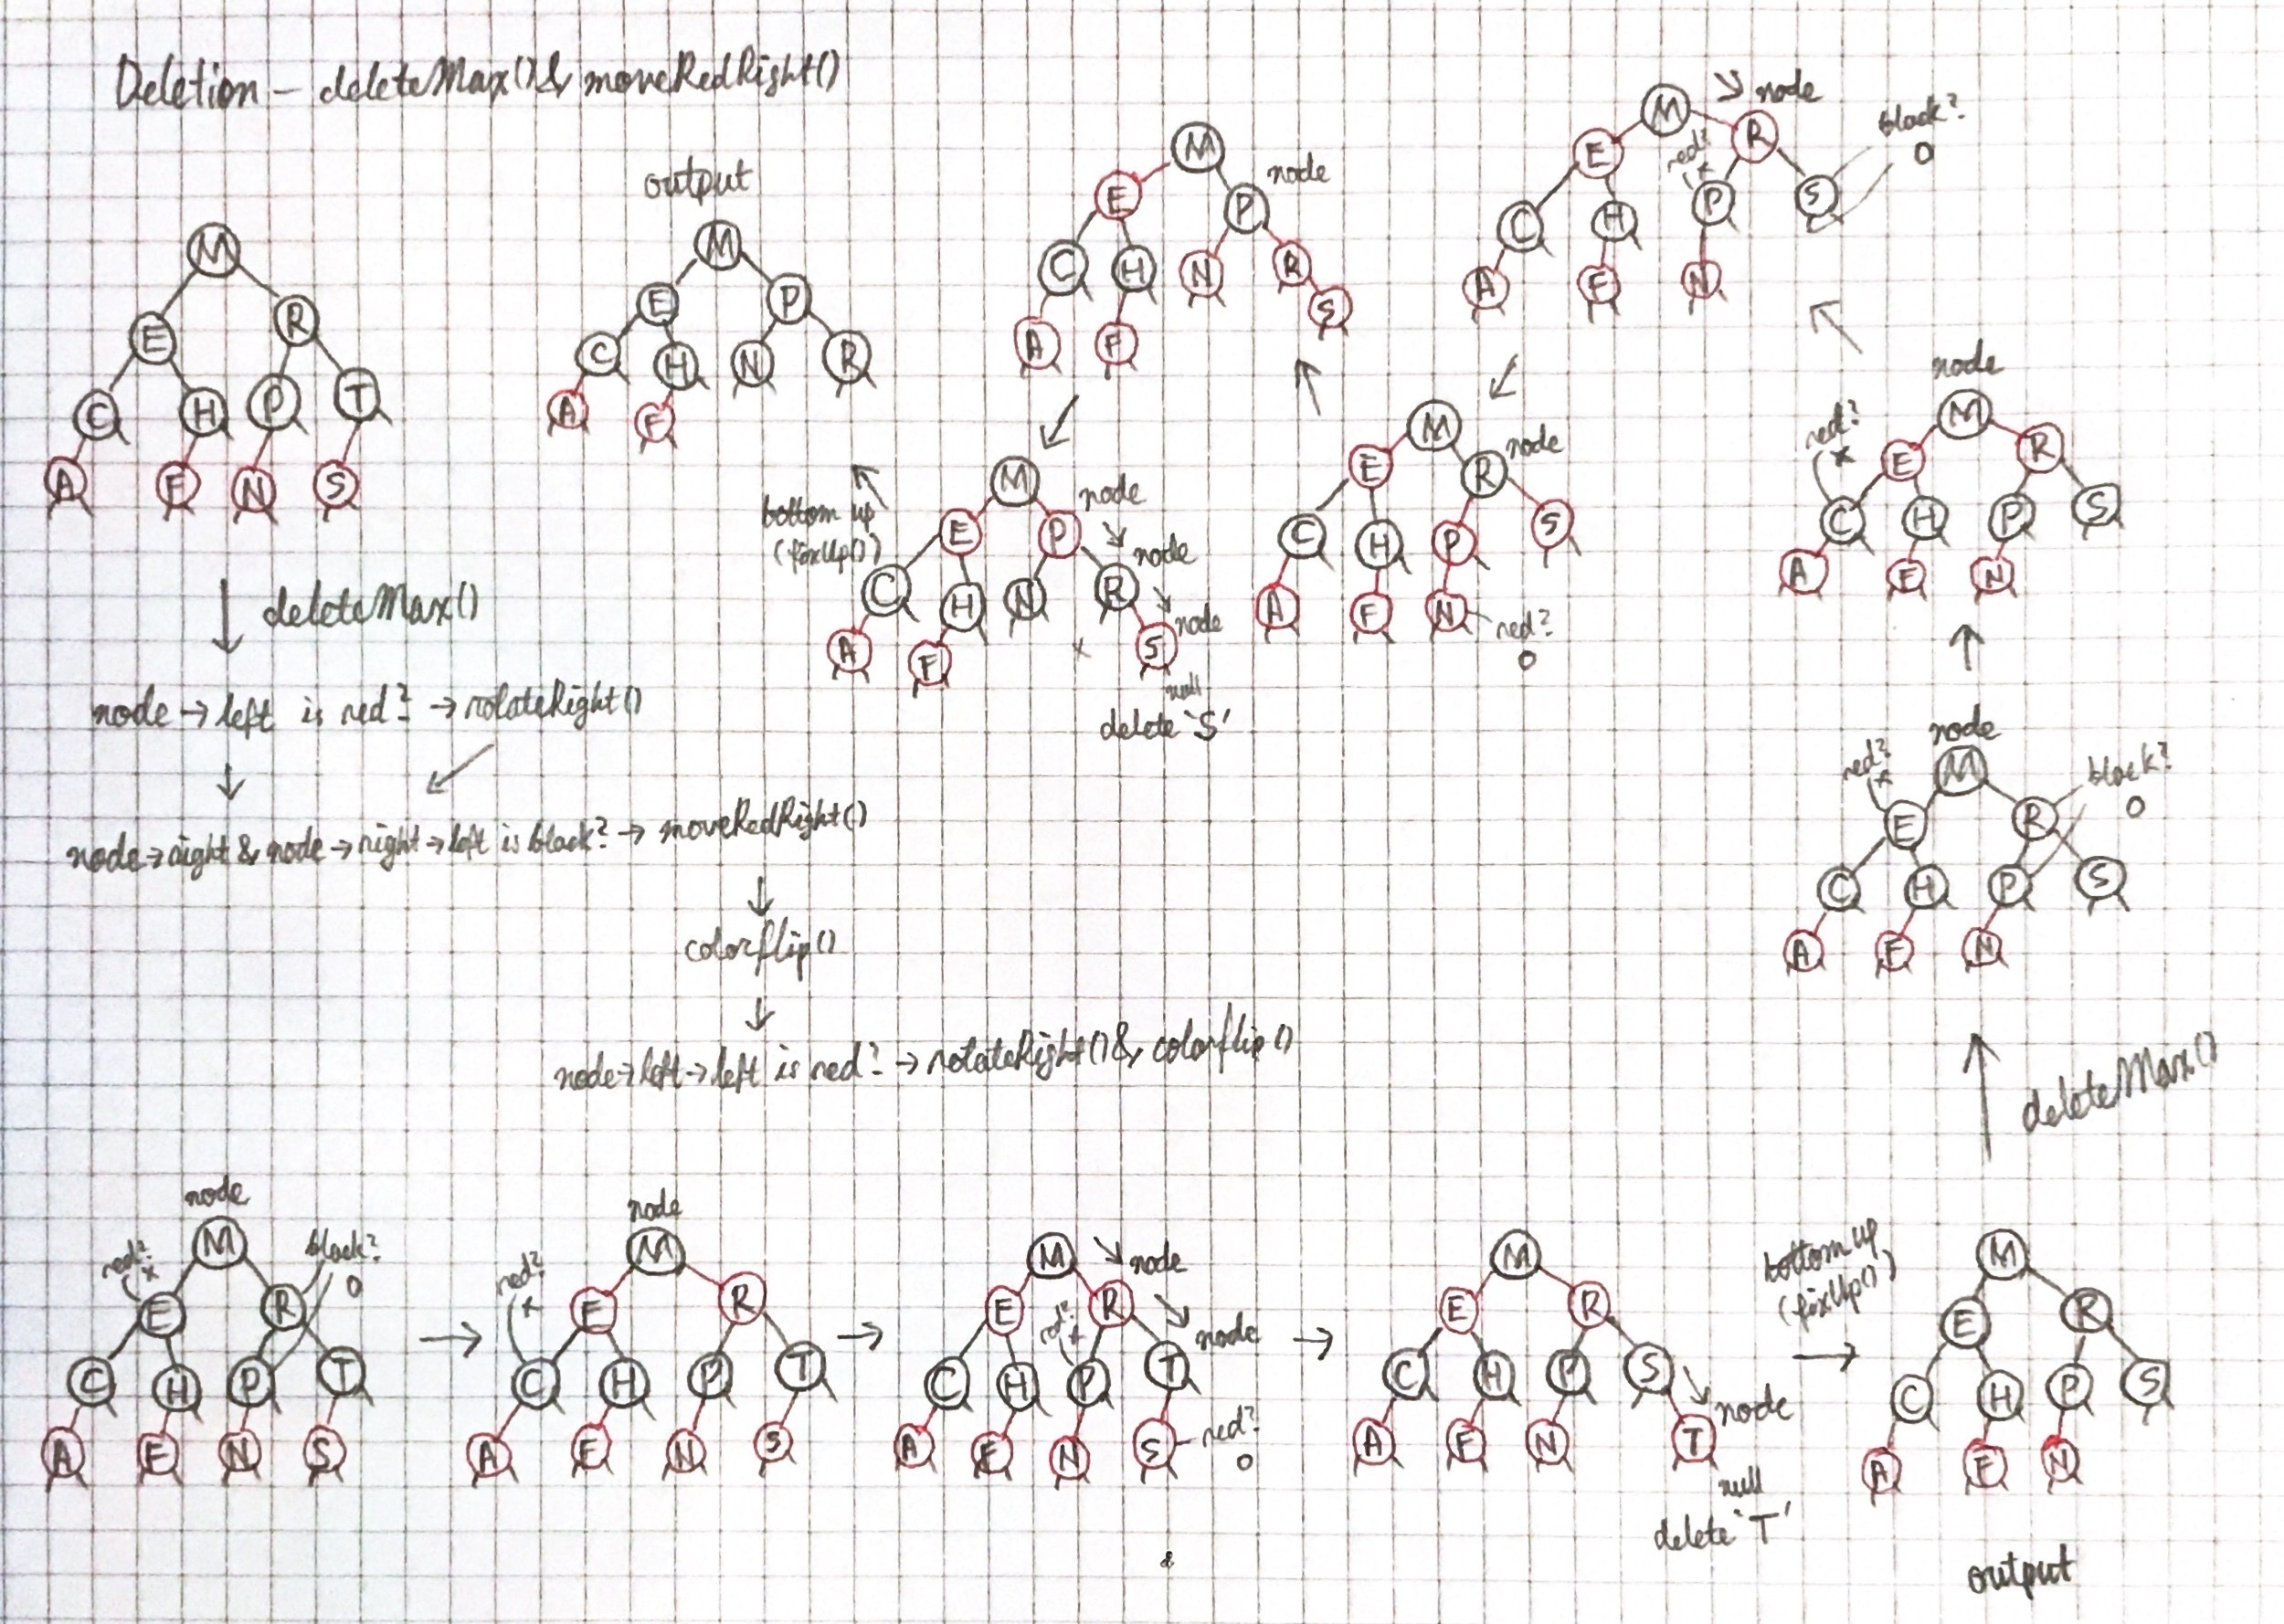 Deletion - deleteMax() & moveRedRight()
M
E R
C H P T
A F N S
↓ deleteMax()
node → left is red? → rotateRight()
↓ ↙
node → right & node → right → left is black? → moveRedRight()
↓
colorflip()
↓
node → left → left is red? → rotateRight() & colorflip()
node
M
red? x
black? o
E R
C H P T
A F N S
→
node
M
red? x
E R
C H P T
A F N S
→
M ↘ node
E R ↘ node
red? x
C H P T
A F N S red? o
→
M
E R
C H P S
A F N T ↘ node
null
delete 'T'
bottom up
(fixUp())
→
M
E R
C H P S
A F N
output
↑ deleteMax()
node
M
red? x
black? o
E R
C H P S
A F N
↑
node
M
red? x
E R
C H P S
A F N
↖
M ↘ node
E R
red? x
black? o
C H P S
A F N
↙
M
E R node
C H P S
A F N red? o
↖
M
E P node
C H N R
A F S
↙
M
E P node
↘ node
C H N R
↘ node
A F x S
null
delete 'S'
bottom up
(fixUp())
↖
output
M
E P
C H N R
A F